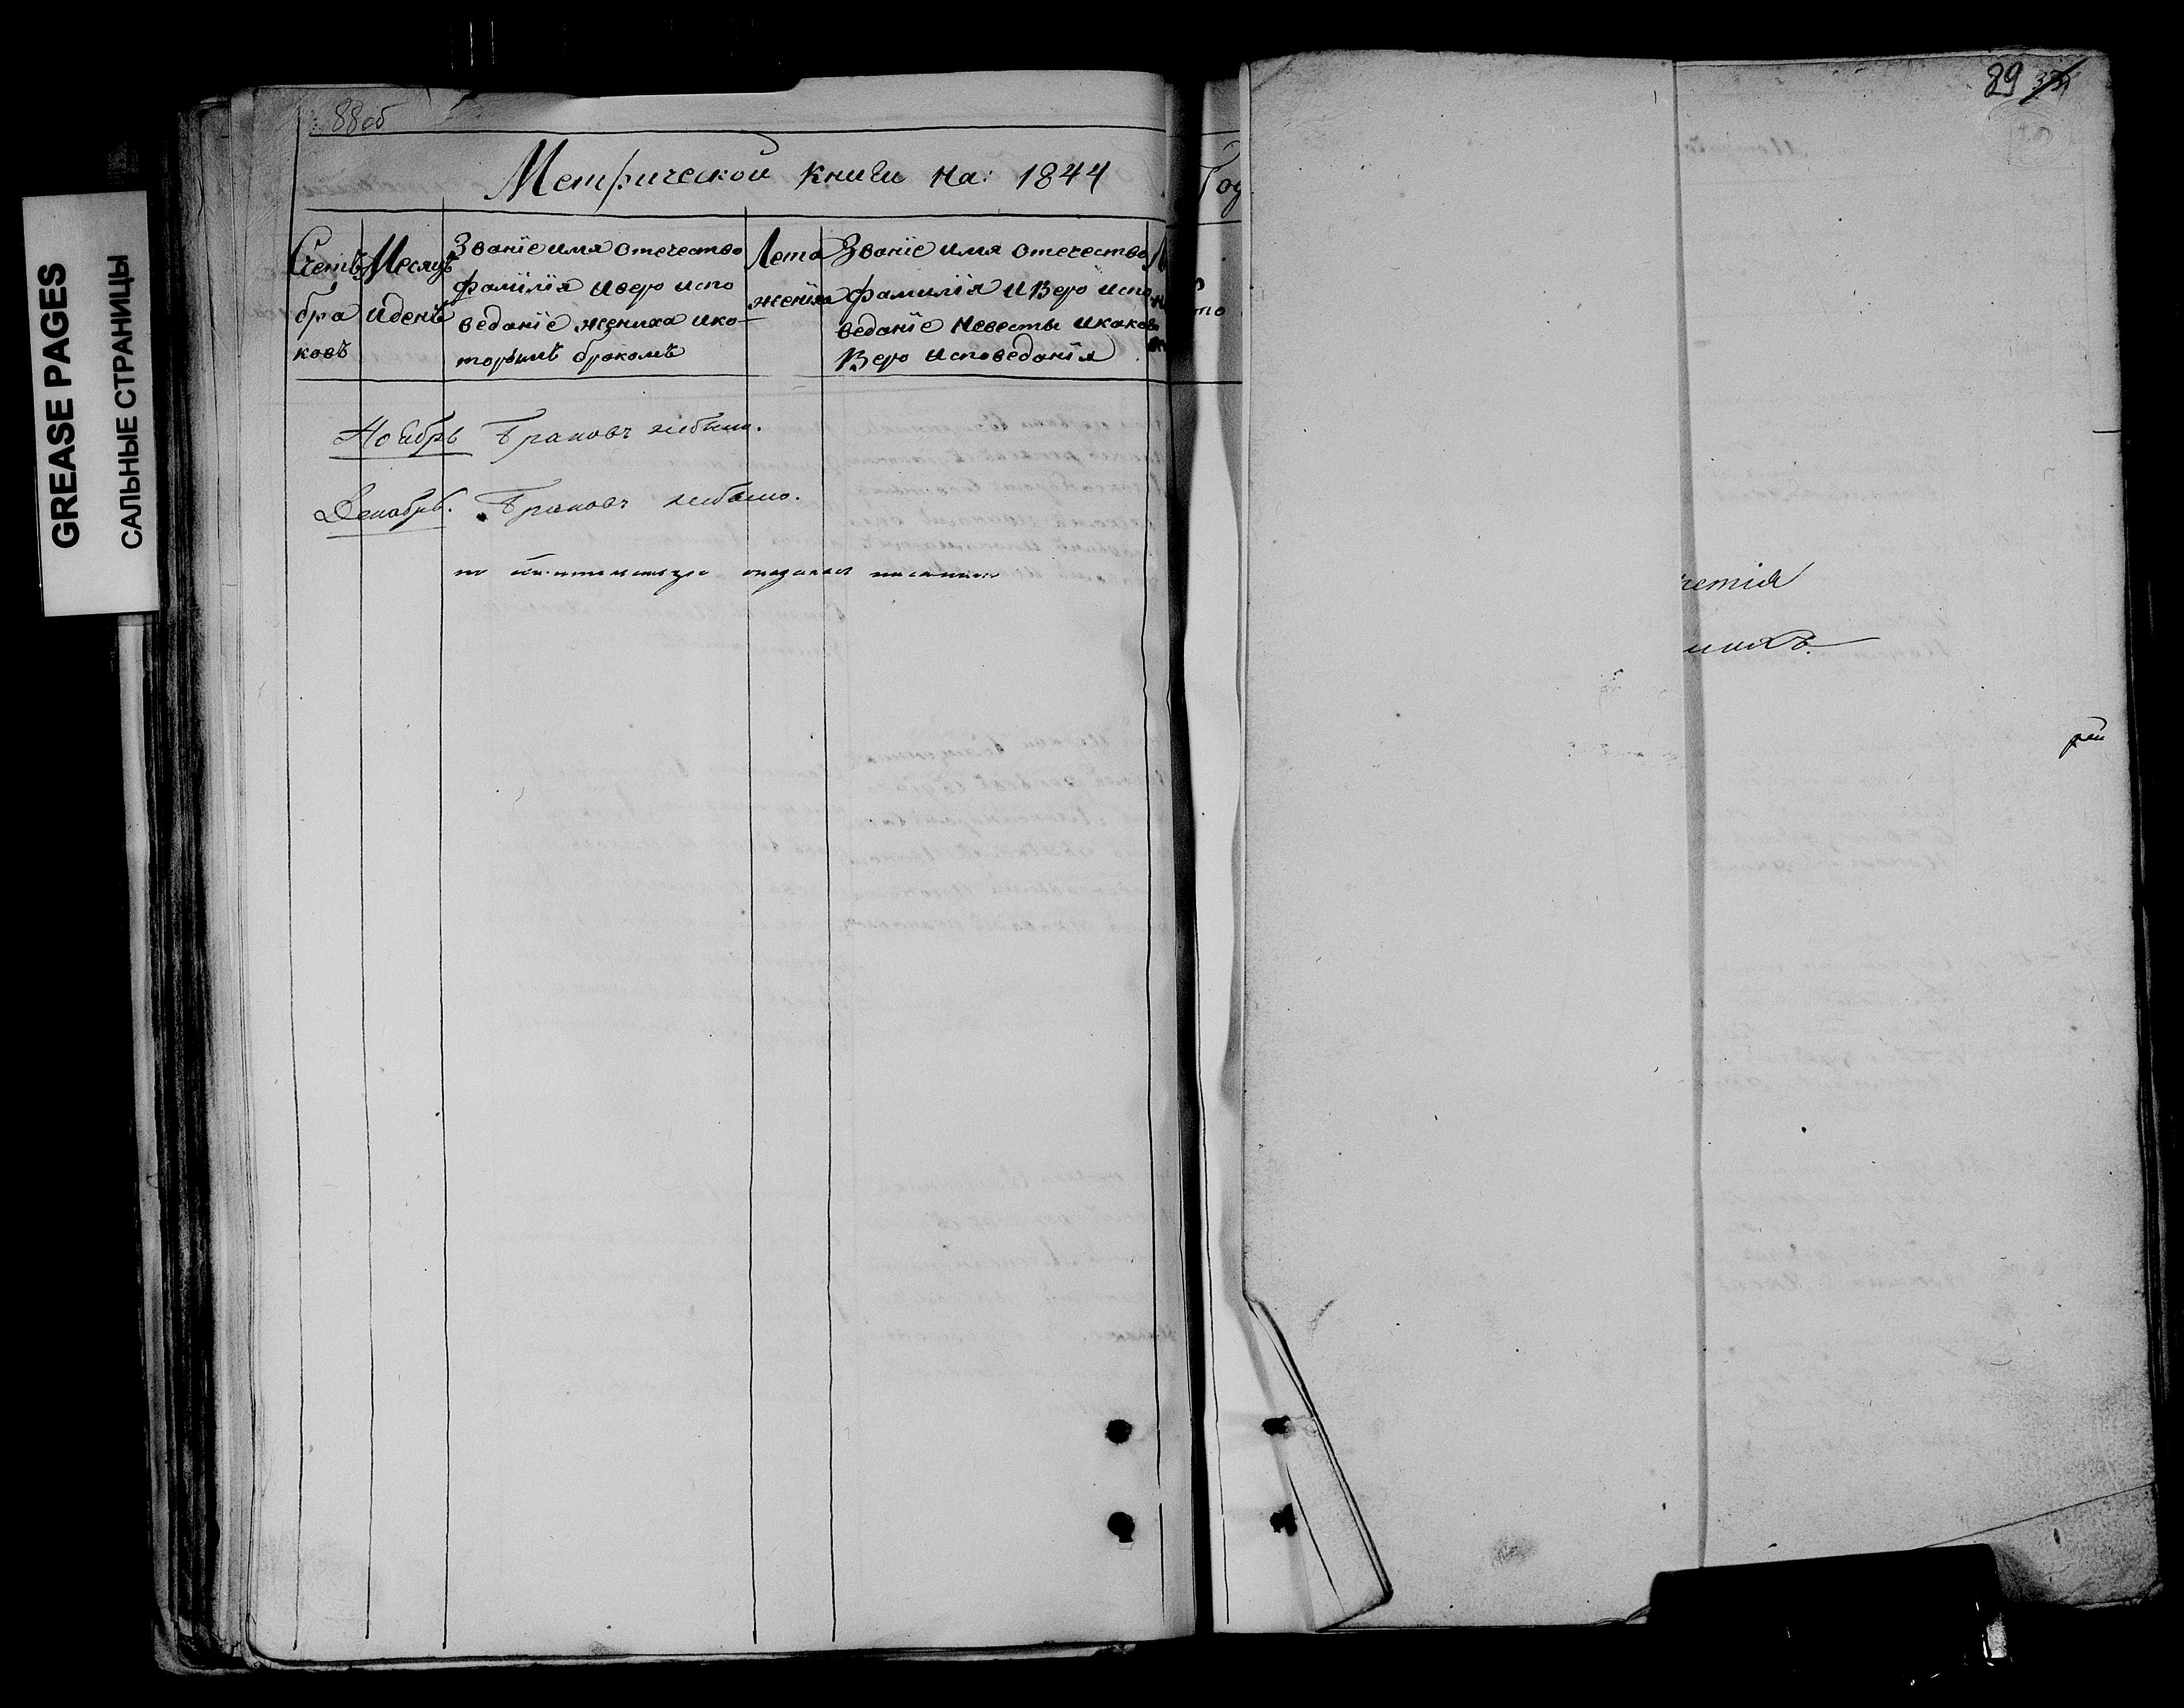 GREASE PAGES
САЛЬНЫЕ СТРАНИЦЫ
88об
Метрической книги на: 1844
Год
Счетъ
бра
ковъ
Месяцъ
и день
Званїе имя отечество
фамилїя и веро испо
веданїе жениха и ко
торымъ бракомъ
Лета
жениха
Званїе имя отечество
фамилїя и Веро испо
веданїе Невесты и какова
Веро исповеданїя
Ноябрь Браковъ небыло.
Декабрь. Браковъ небыло.
89
четїя
шихъ.